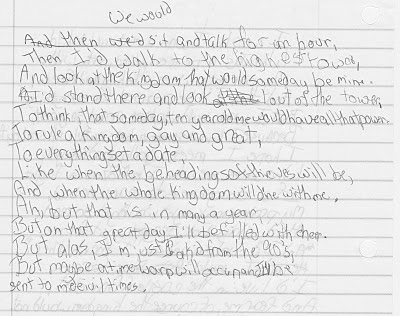 We would
And then we'd sit and talk for an hour,
Then I'd walk to the highest tower,
And look at the kingdom, that would someday be mine.
I'd stand there and look out of the tower,
To think that someday, ten year old me would have all that power.
To rule a kingdom, gay and great,
To everything set a date,
Like when the beheadings of thieves will be,
And when the whole kingdom will dine with me.
Ah, but that is in many a year.
But on that great day I'll be filled with cheer.
But alas, I'm just a kid from the 90's,
But maybe a time warp will occur and I'll be
sent to midevil times.